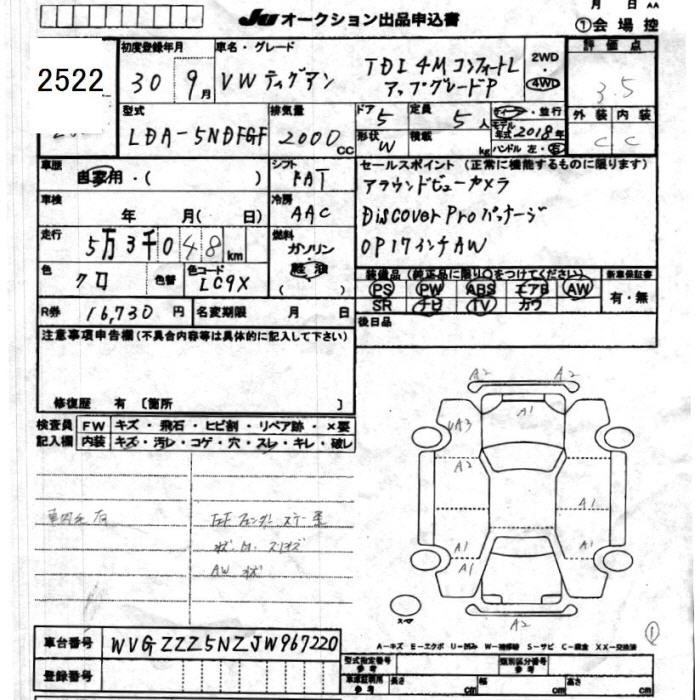 月 日 AA
JU オークション出品申込書
①会場控
2522
初度登録年月
30 9月
車名・グレード
VW ティグアン
TDI 4M コンフォートL
アップグレードP
2WD
・
4WD
評価点
3.5
型式
LDA-5NDFGF
排気量
2000 cc
ドア
5
定員
5 人
形状
W
積載
kg
ディーラー・並行
モデル年式 2018年
ハンドル 左・右
外装 内装
C C
車歴
自家用・( )
シフト
FAT
セールスポイント(正常に機能するものに限ります)
アラウンドビューカメラ
Discover Pro パッケージ
OP17インチAW
車検
年 月( 日)
冷房
AAC
走行
5万3千048km
燃料
ガソリン
・
軽油
( )
色
クロ
色替
色コード
LC9X
装備品(純正品に限り○をつけてください)
新車保証書
PS PW ABS エアB AW
SR ナビ TV カワ
有・無
R券 16,730円
名変期限 月 日
後日品
注意事項申告欄(不具合内容等は具体的に記入して下さい)
修復歴 有〔箇所 〕
検査員記入欄
FW キズ・飛石・ヒビ割・リペア跡・×要
内装 キズ・汚レ・コゲ・穴・スレ・キレ・破レ
AW 状
A2
A1
UA3
A2
A1
A1
A1
A1
A2
スマ
①
A−キズ E−エクボ U−凹み W−補修跡 S−サビ C−腐食 XX−交換済
車台番号 WVGZZZ5NZJW967220
登録番号
型式指定番号
参考
類別区分番号
参考
車庫証明用
参考
長さ cm
幅 cm
高さ cm